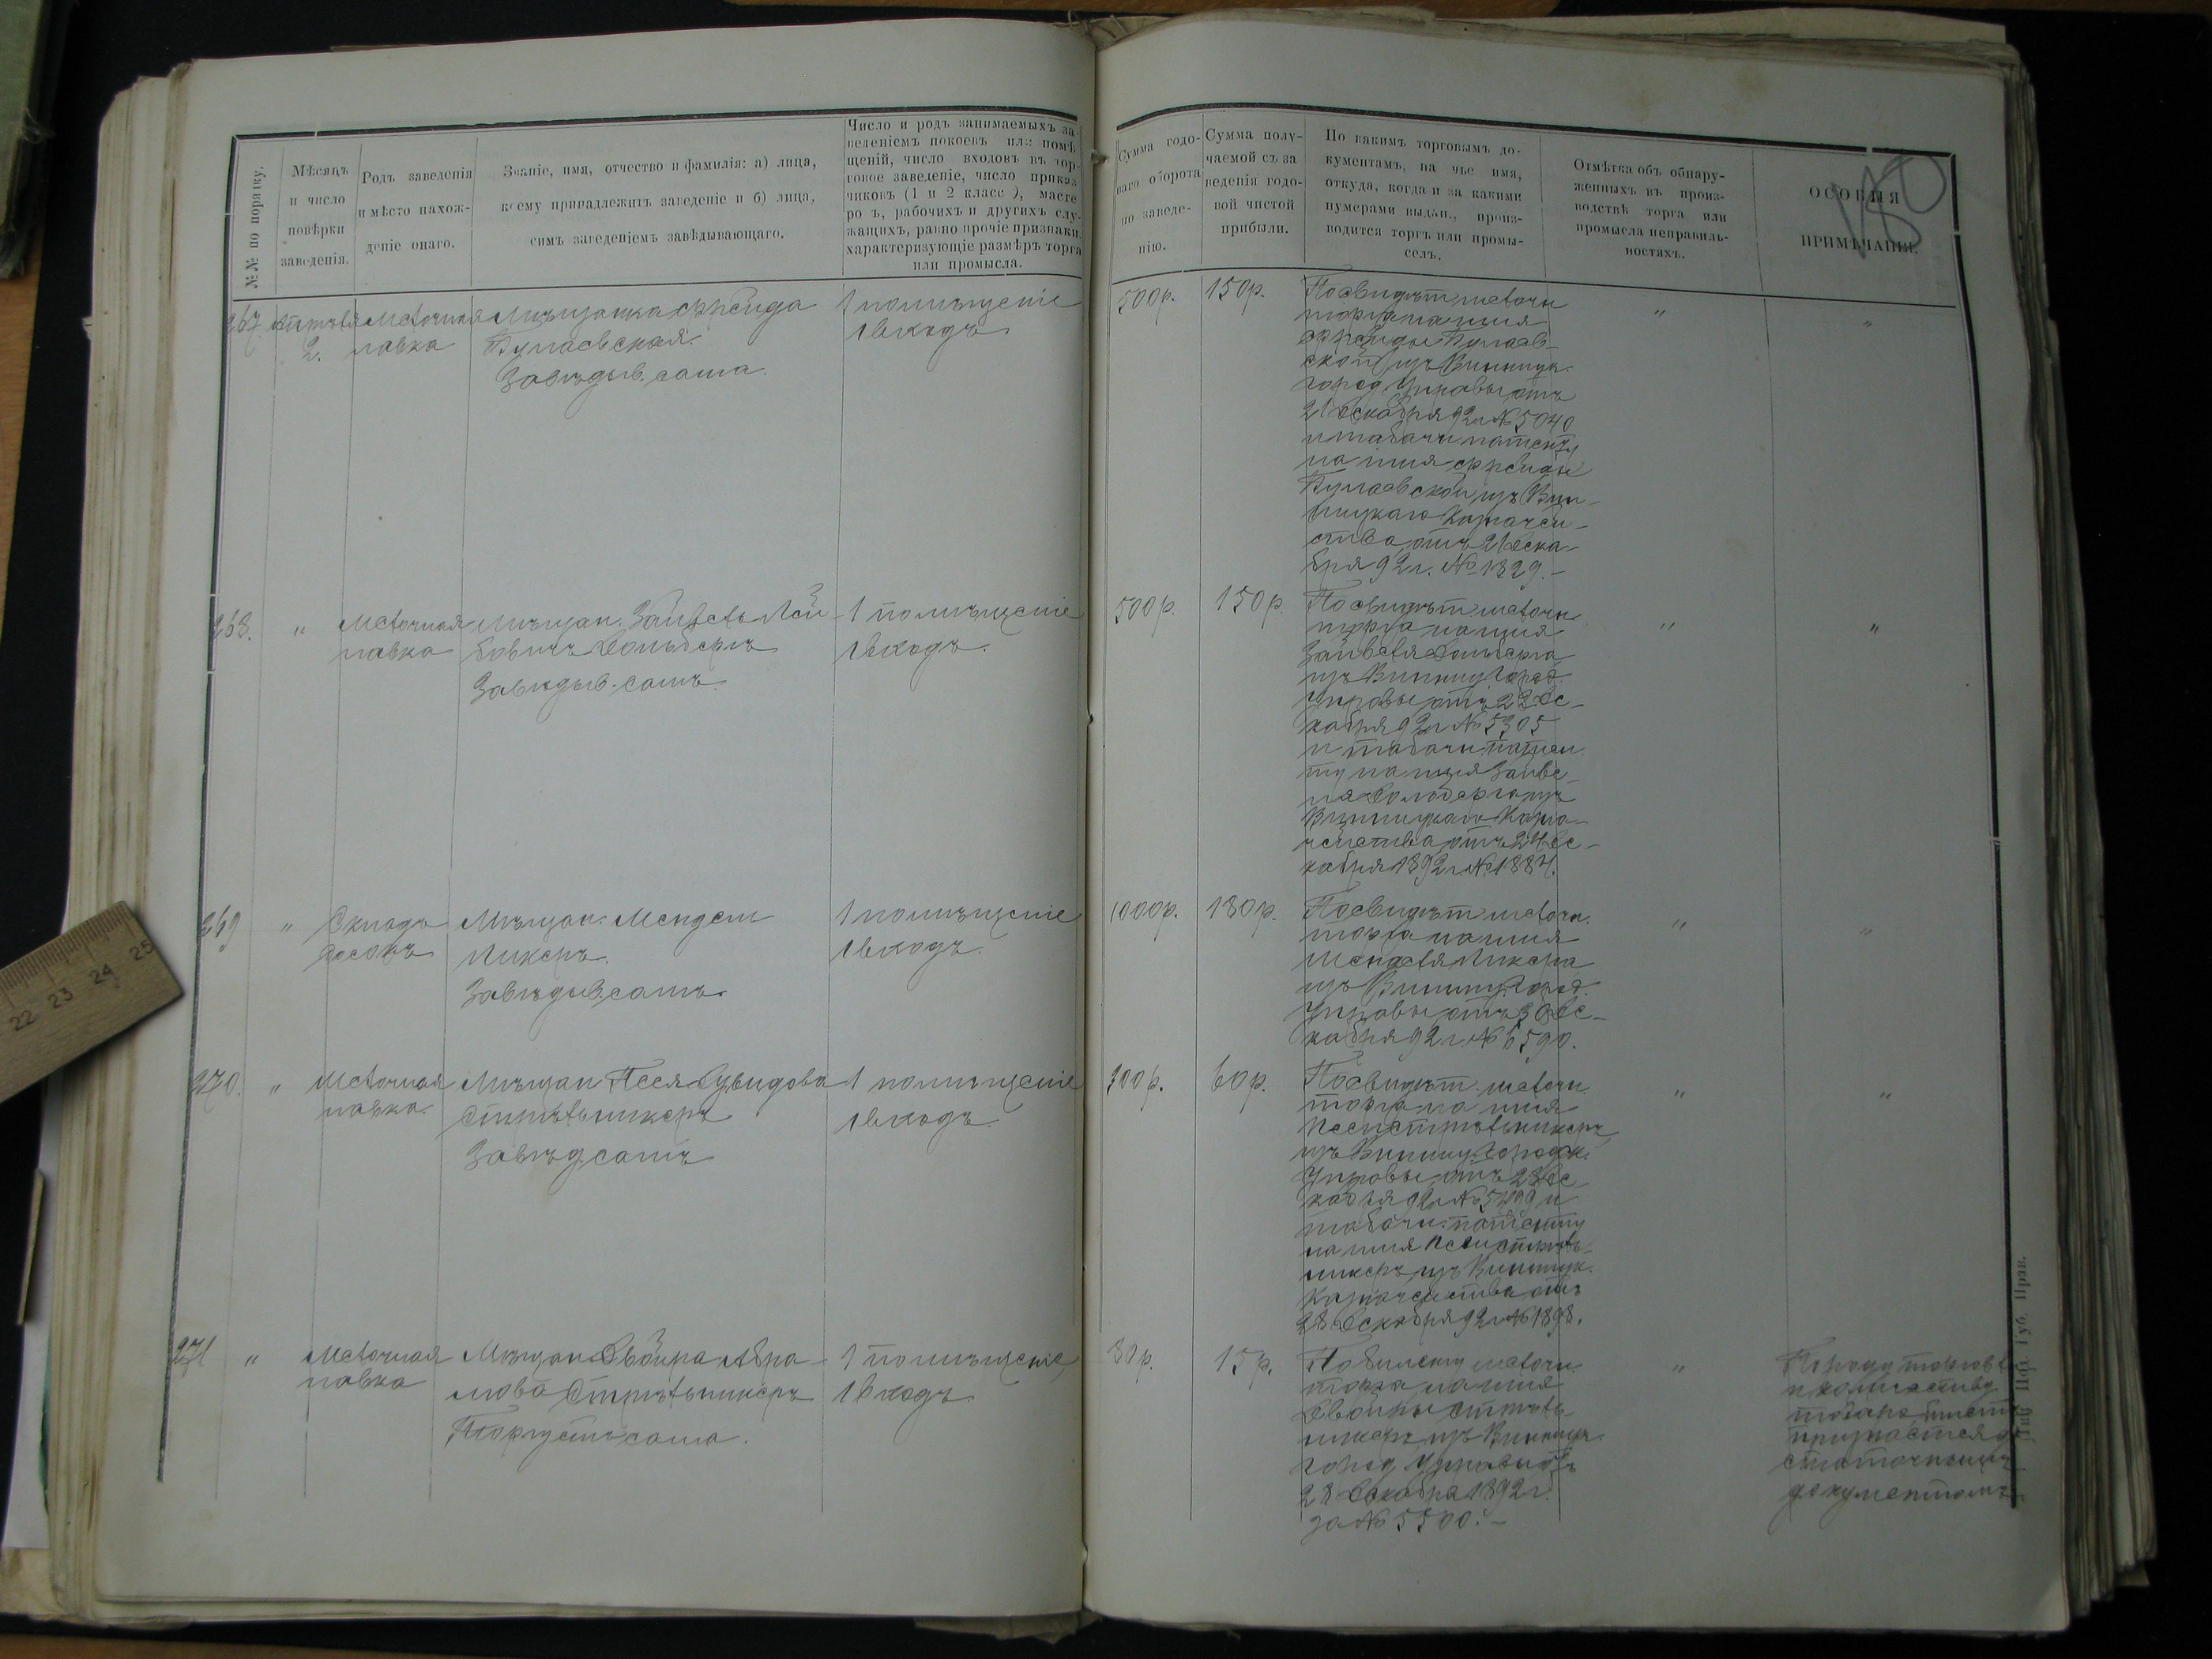 №№ по порядку.
Мѣсяцъ
и число
повѣрки
заведенія.
Родъ заведенія
и мѣсто нахож-
деніе онаго.
Званіе, имя, отчество и фамилія: а) лица,
коему принадлежитъ заведеніе и б) лица,
симъ заведеніемъ завѣдывающаго.
Число и родъ занимаемыхъ за-
веденіемъ покоевъ или помѣ-
щеній, число входовъ въ тор-
говое заведеніе, число прикащ-
чиковъ (1 и 2 класс), масте-
ровъ, рабочихъ и другихъ слу-
жащихъ, равно прочіе признаки,
характеризующіе размѣръ торга
или промысла.
Сумма годо-
ваго оборота
по заведе-
нію.
Сумма полу-
чаемой съ за
веденія годо-
вой чистой
прибыли.
По какимъ торговымъ до-
кументамъ, на чье имя,
откуда, когда и за какими
нумерами выдан., произ-
водится торгъ или промы-
селъ.
Отмѣтка объ обнару-
женныхъ въ произ-
водствѣ торга или
промысла неправиль-
ностяхъ.
ОСОБЫЯ
ПРИМѢЧАНІЯ.
267
2.
Мелочная
лавка
Мѣщанка Фрейда
Завѣдыв. сама.
1 помѣщеніе
1 входъ
500р.
150р.
По свидѣт. мелочн.
торга на имя
Фрейды
изъ Винниц.
город. Управы отъ
21 Декабря 92г. № 5040
и табачн. патенту
на имя Фрейды
изъ Вин-
ницкаго Казначей-
ства отъ 21 Дека-
бря 92 г. № 1829.-
"
"
268.
"
Мелочная
лавка
Мѣщан. Зайвель Лей-
бовичъ Гольбергъ
Завѣдыв. самъ.
1 помѣщеніе
1 входъ.
500р.
150р.
По свидѣт. мелочн.
торга на имя
Зайвеля Гольберга
изъ Винниц. Город.
Управы отъ 22 Де-
кабря 92г № 5305
и табачн. патен-
ту на имя Зайве-
ля Гольберга изъ
Винницкаго Казна-
чейства отъ 24 Де-
кабря 1892 г. № 1884.
"
"
269
"
Складъ
досокъ
Мѣщан. Мендель
Пикеръ.
Завѣдыв. самъ.
1 помѣщеніе
1 входъ.
1000р.
180р.
По свидѣт. мелочн.
торга на имя
Менделя Пикера
изъ Винниц. Город.
Управы отъ 30 Де-
кабря 92 г. № 5590.
"
"
270.
"
Мелочная
лавка.
Мѣщан. Песя
Стрѣльникеръ
Завѣд. самъ
1 помѣщеніе
1 входъ.
300р.
60р.
По свидѣт. мелочн.
торга на имя
Песи Стрѣльникеръ
изъ Винниц. Городск.
Управы отъ 28 Де-
кабря 92г № 5499 и
табачн. патенту
на имя Песи Стрѣль-
никеръ изъ Винницк.
Казначейства отъ
28 Декабря 92г № 1898.
"
"
271
"
Мелочная
лавка
Мѣщан. Двойра Абра-
мова Стрѣльникеръ
Торгуетъ сама.
1 помѣщеніе
1 входъ.
80р.
15р.
По билету мелочн.
торга на имя
Двойры Стрѣль-
никеръ изъ Винниц.
город. Управы отъ
28 Декабря 1892 г.
за № 5500.-
"
По роду торговли
и количеству
товара билетъ
признается до-
статочнымъ
документомъ
22 23 24 25